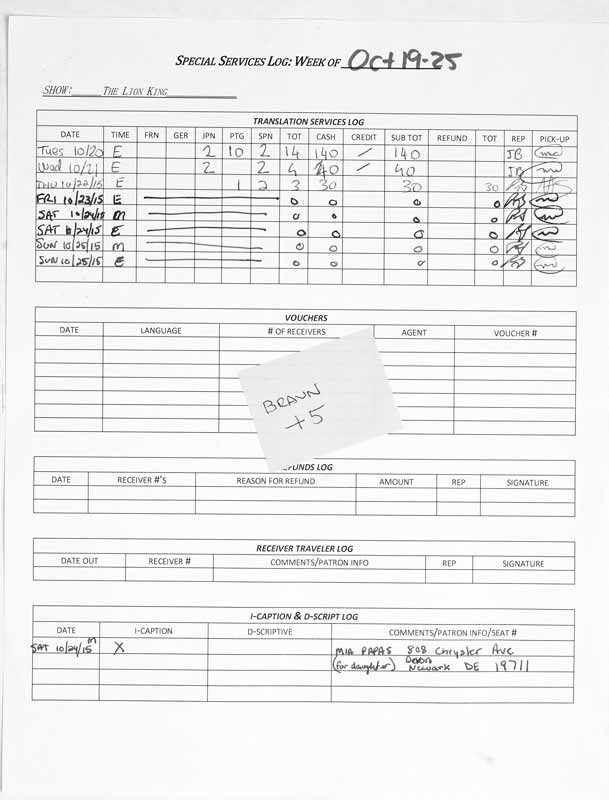 SPECIAL SERVICES LOG: WEEK OF Oct 19-25
SHOW: THE LION KING
TRANSLATION SERVICES LOG
DATE TIME FRN GER JPN PTG SPN TOT CASH CREDIT SUB TOT REFUND TOT REP PICK-UP
Tues 10/20 E 2 10 2 14 140 / 140 JB
Wed 10/21 E 2 2 4 40 / 40 JB
THU 10/22/15 E 1 2 3 30 30 30
FRI 10/23/15 E 0 0 0 0
SAT 10/24/15 M 0 0 0 0
SAT 10/24/15 E 0 0 0 0
SUN 10/25/15 M 0 0 0 0
SUN 10/25/15 E 0 0 0 0
VOUCHERS
DATE LANGUAGE # OF RECEIVERS AGENT VOUCHER #
BRAUN
+5
FUNDS LOG
DATE RECEIVER #'S REASON FOR REFUND AMOUNT REP SIGNATURE
RECEIVER TRAVELER LOG
DATE OUT RECEIVER # COMMENTS/PATRON INFO REP SIGNATURE
I-CAPTION & D-SCRIPT LOG
DATE I-CAPTION D-SCRIPTIVE COMMENTS/PATRON INFO/SEAT #
SAT 10/24/15 M X MIA PAPAS 808 Chrysler Ave
(for daughter) Newark DE 19711